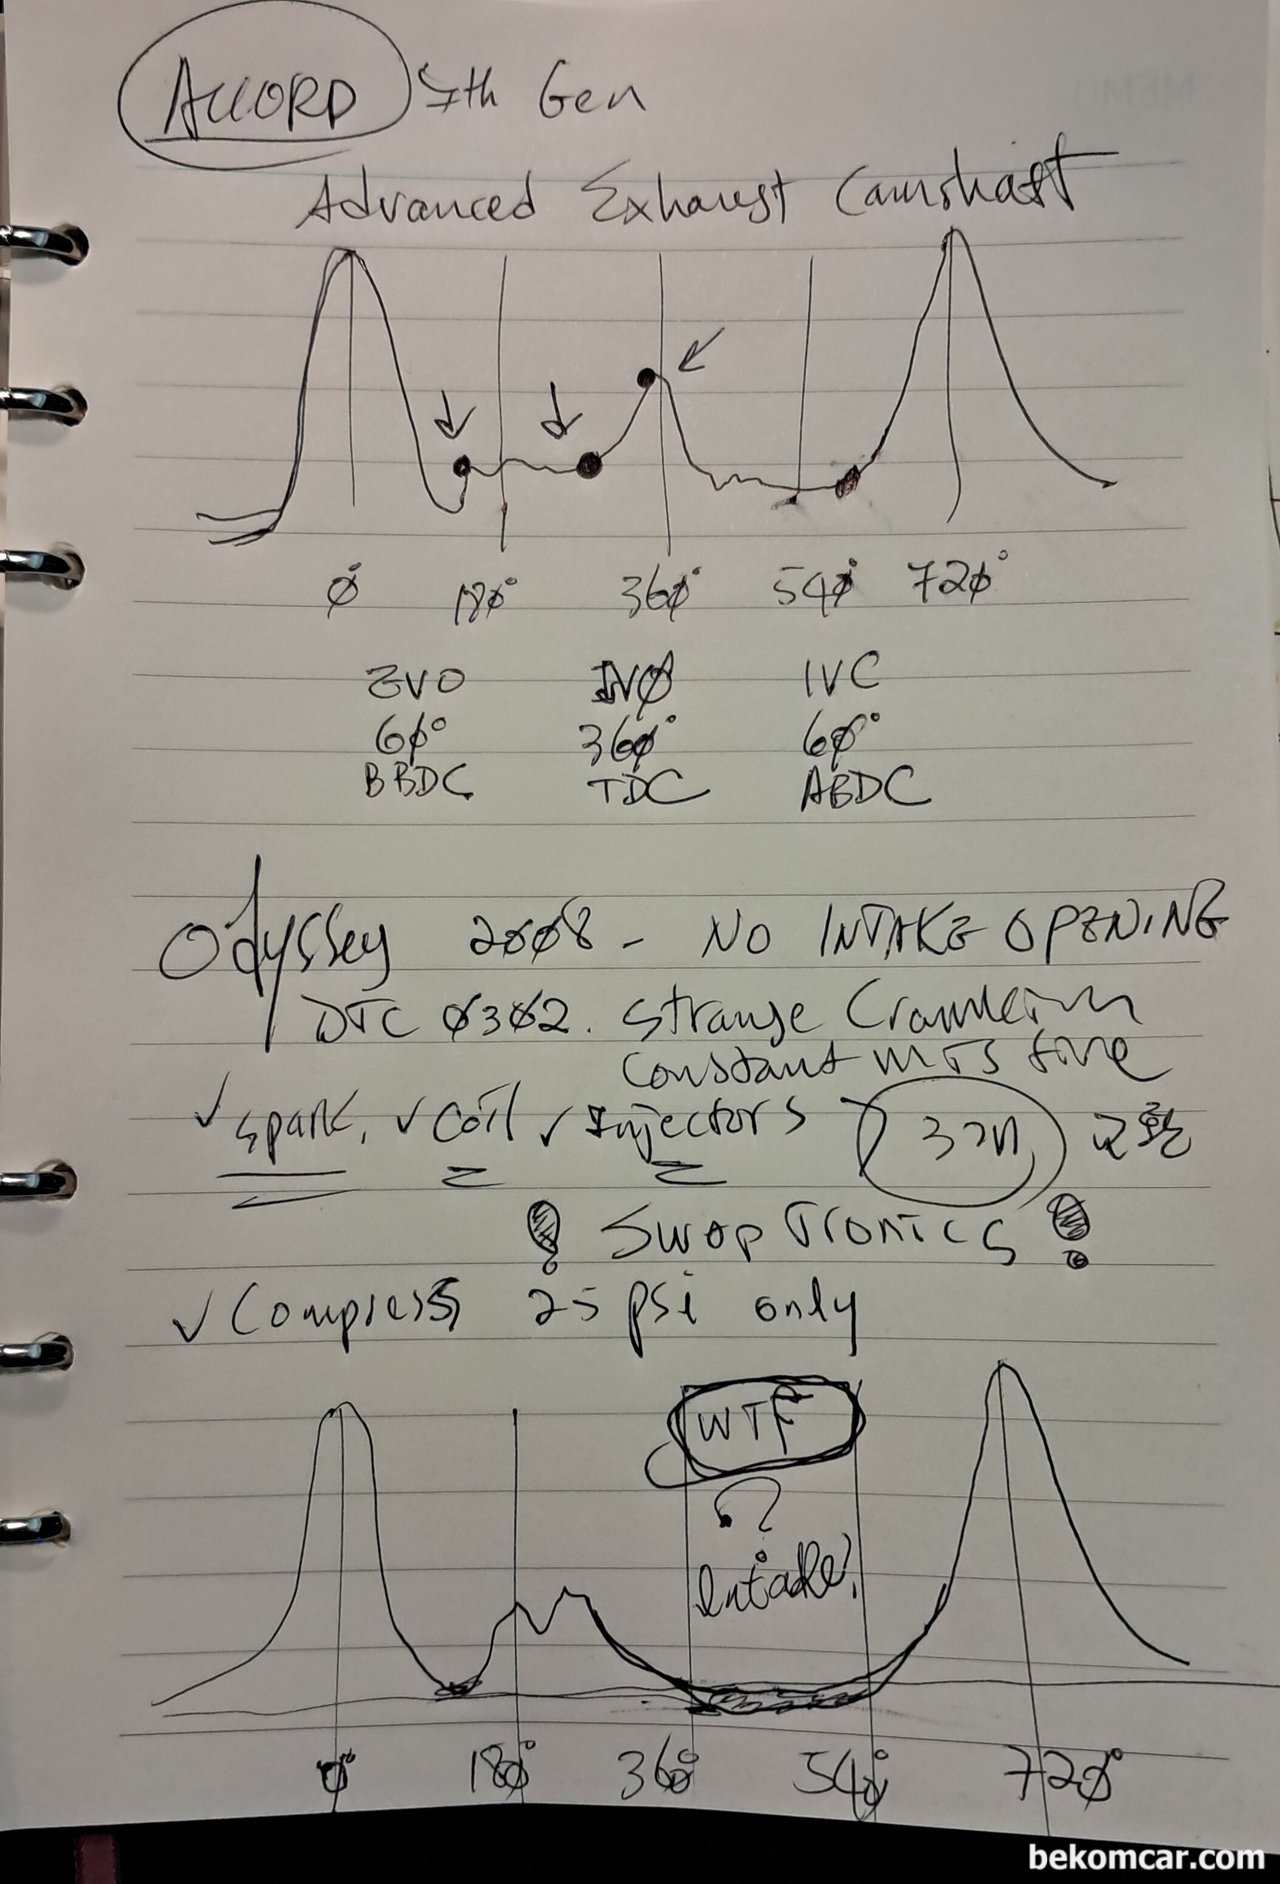 ACCORD 7th Gen
Advanced Exhaust Camshaft
0° 180° 360° 540° 720°
EVO IVO IVC
60° 360° 60°
BBDC TDC ABDC
Odyssey 2008 - NO INTAKE OPENING
DTC 0302. Strange
Constant
✓ spark, ✓ coil ✓ Injectors 교환
! Swap Tronics !
✓ Compress 25 psi only
WTF
?
Intake?
0° 180° 360° 540° 720°
bekomcar.com